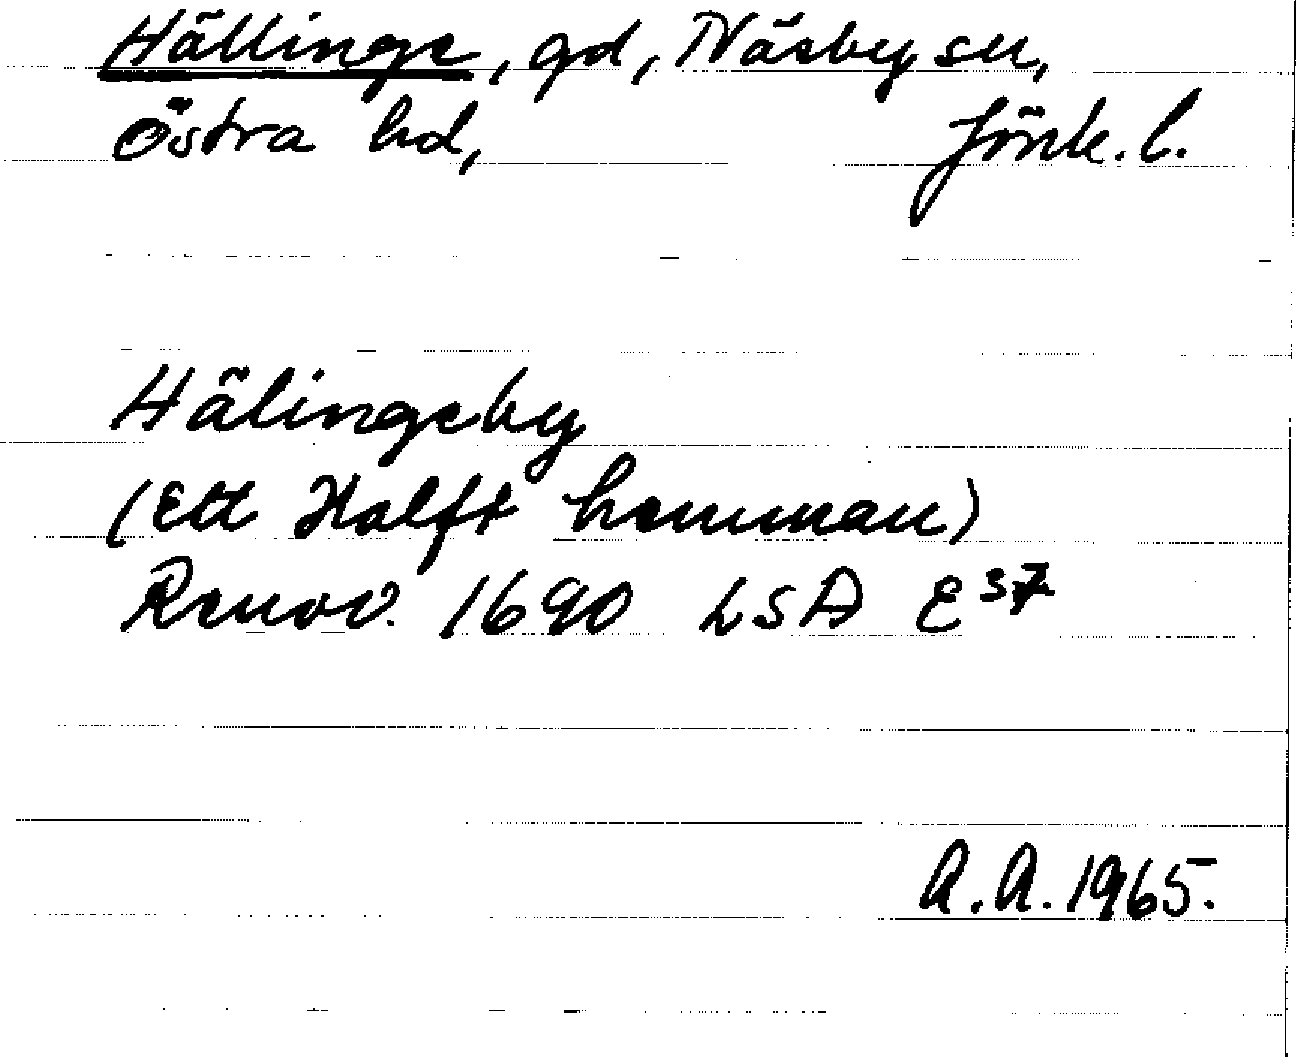 Hällinge, gd, Näsby sn,
Östra hd, Jönk. l.
Hälingeby
(Ett Halft hemman)
Renov. 1690 LSA E 37
A.A. 1965.